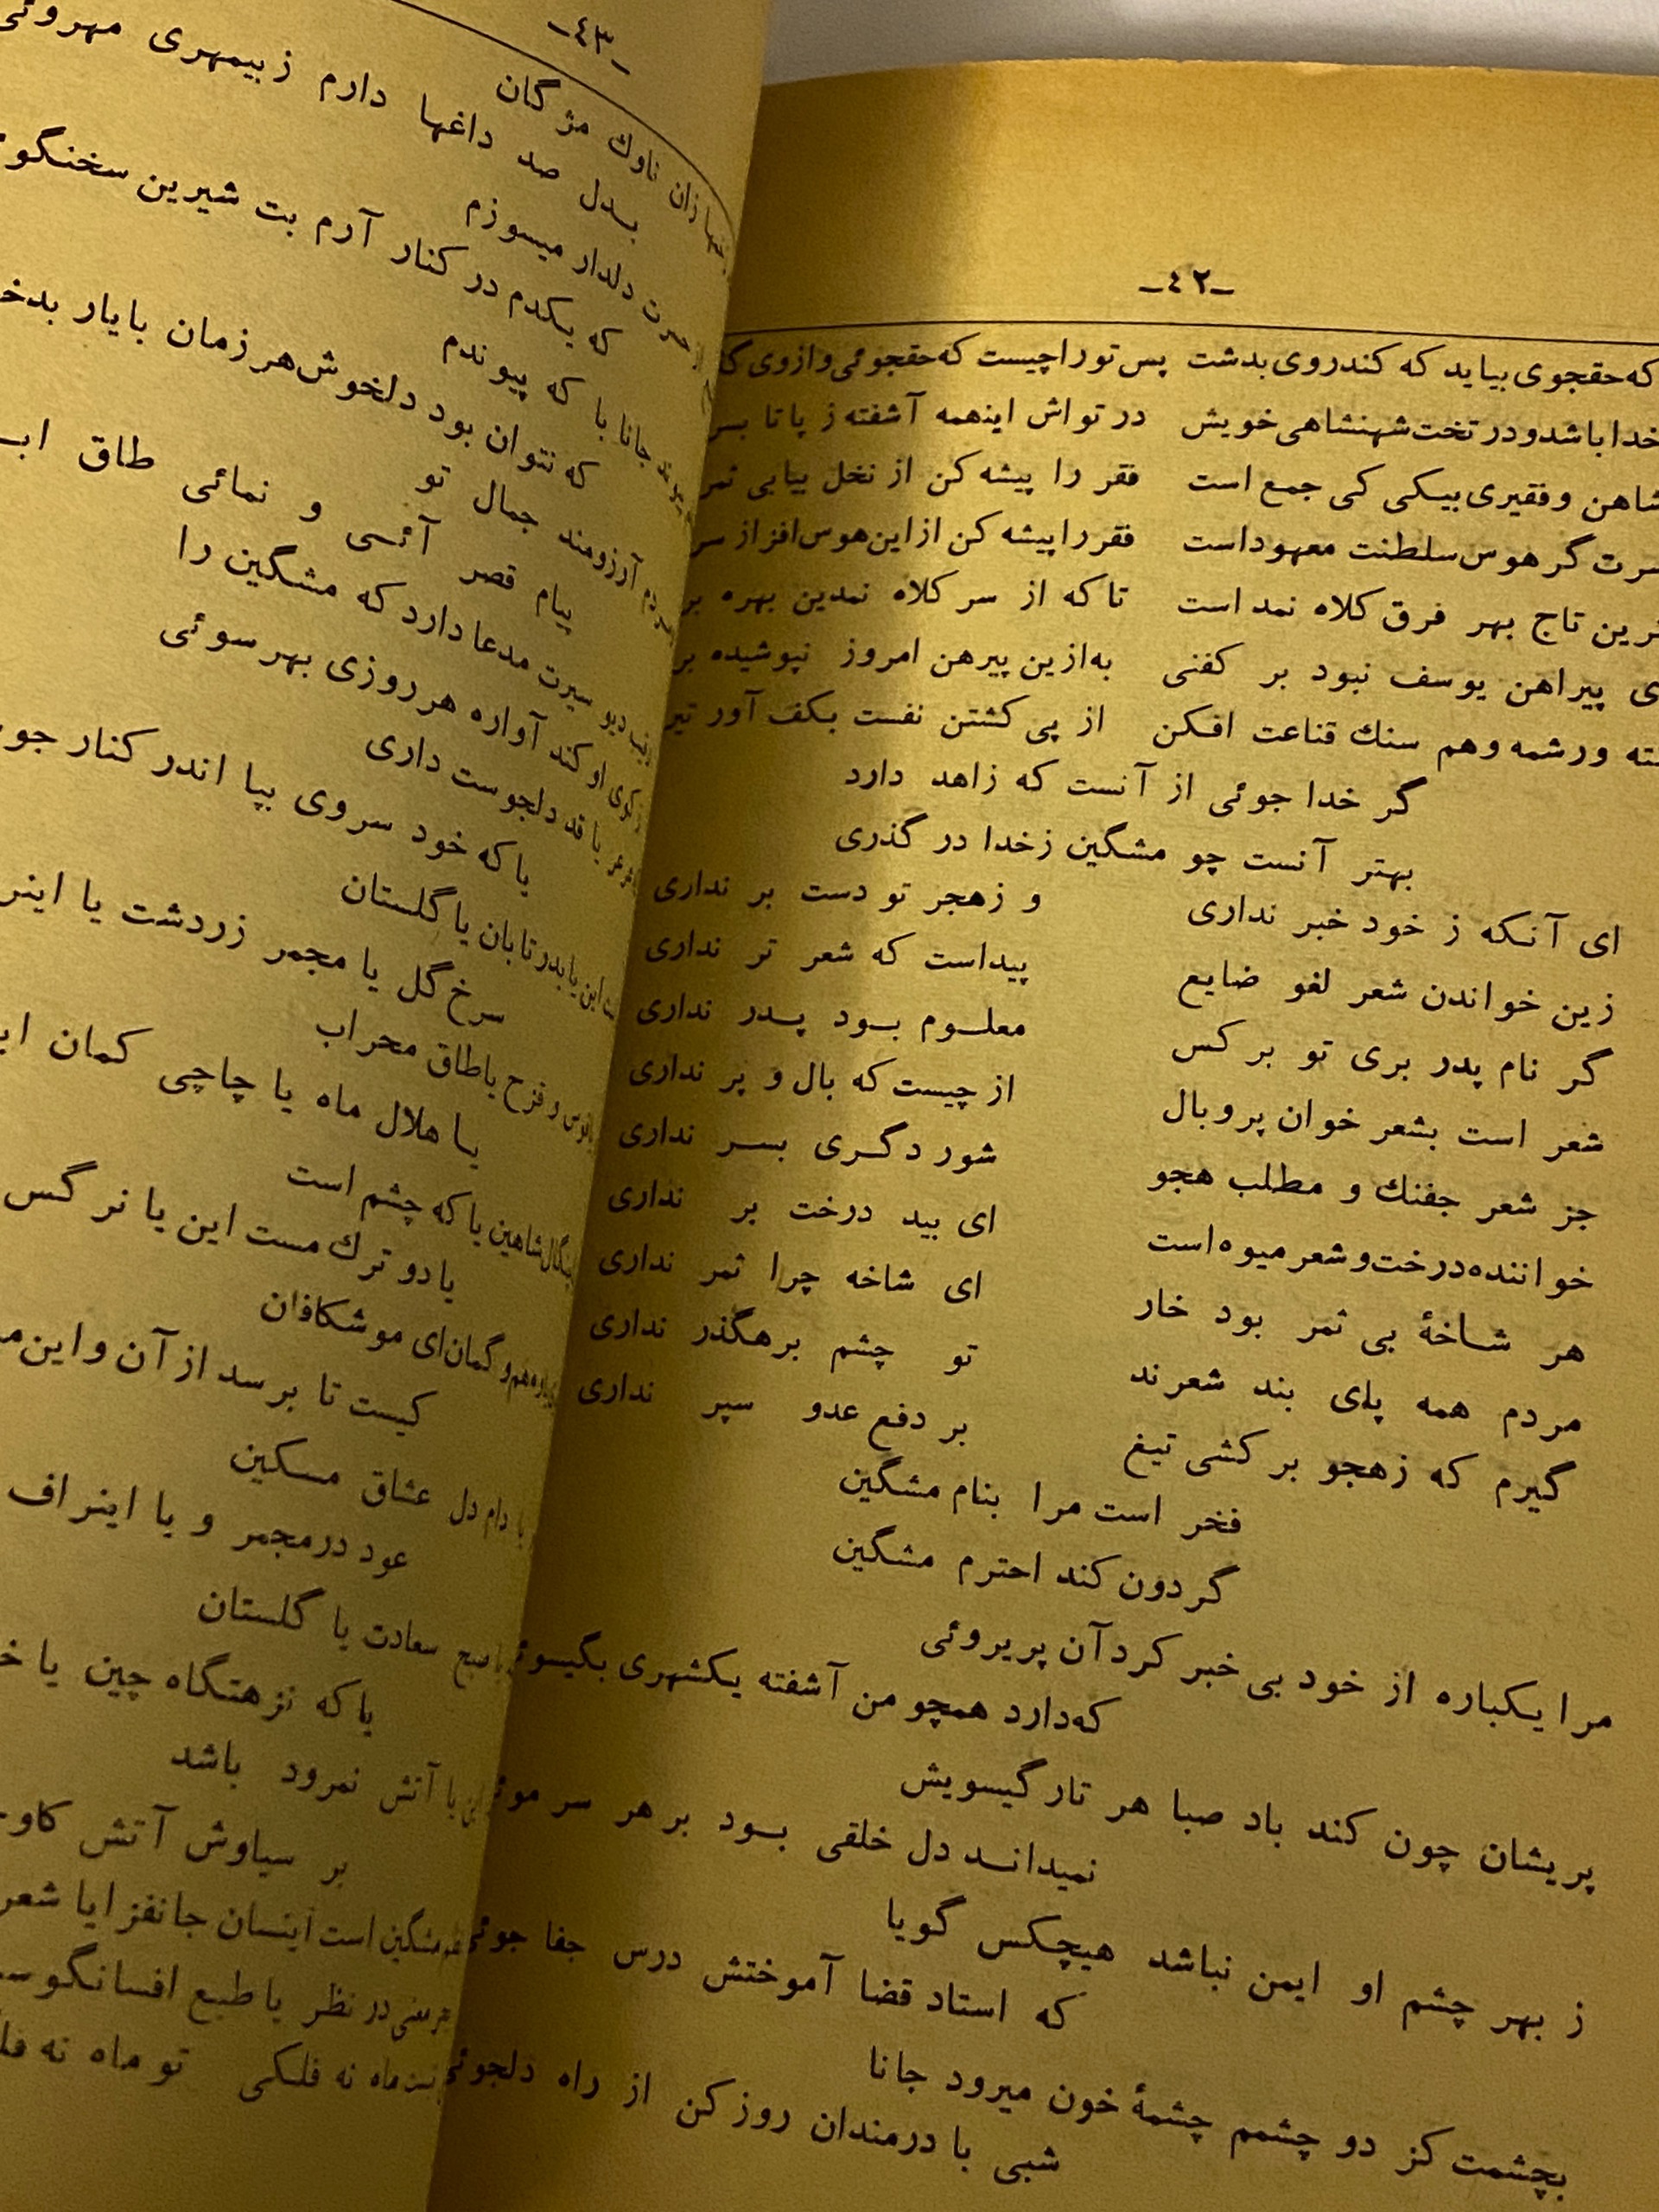 ـ٤٢ـ
که حقجوی بیاید که کند روی بدشت پس تو را چیست که حقجوئی و از وی
خدا باشد و در تخت شهنشاهی خویش در تو اش اینهمه آشفته ز پا تا بسر
شاهن و فقیری بیکی کی جمع است فقر را پیشه کن از نخل بیابی ثمر
گر هوس سلطنت معهود است فقر را پیشه کن از این هوس افزاز سر
تاج بهر فرق کلاه نمد است تا که از سر کلاه نمدین بهره بر
پیراهن یوسف نبود بر کفنی به از ین پیرهن امروز نپوشیده بر
ورشمه وهم سنك قناعت افکن از پی کشتن نفست بکف آور تیر
گر خدا جوئی از آنست که زاهد دارد
بهتر آنست چو مشگین زخدا در گذری
ای آنکه ز خود خبر نداری و زهجر تو دست بر نداری
زین خواندن شعر لغو ضایع پیداست که شعر تر نداری
گر نام پدر بری تو بر کس معلوم بود پدر نداری
شعر است بشعر خوان پر وبال از چیست که بال و پر نداری
جز شعر جفنك و مطلب هجو شور دگری بسر نداری
خواننده درخت و شعر میوه است ای بید درخت بر نداری
هر شاخهٔ بی ثمر بود خار ای شاخه چرا ثمر نداری
مردم همه پای بند شعرند تو چشم برهگذر نداری
گیرم که زهجو بر کشی تیغ بر دفع عدو سپر نداری
فخر است مرا بنام مشگین
گردون کند احترم مشگین
مرا یکباره از خود بی خبر کرد آن پریروئی
که دارد همچو من آشفته یکشهری بگیسوئی
پریشان چون کند باد صبا هر تار گیسویش
نمیداند دل خلقی بود بر هر سر موئی
ز بهر چشم او ایمن نباشد هیچکس گویا
که استاد قضا آموختش درس جفا جوئی
بچشمت کز دو چشمم چشمهٔ خون میرود جانا
شبی با درمندان روز کن از راه دلجوئی
ـ٤٣ـ
زان ناوك مژگان
بدل صد داغها دارم زبیمهری مهروئی
حسرت دلدار میسوزم
که یکدم در کنار آرم بت شیرین
جانا با که پیوندم
که نتوان بود دلخوش هر زمان بایار
آرزومند جمال تو
بیام قصر آئسی و نمائی طاق
دیو سیرت مدعا دارد که مشگین را
کوی او کند آواره هر روزی بهر سوئی
یا قد دلجوست داری
یا که خود سروی بپا اندر کنار
این یا بدر تابان یا گلستان
سرخ گل یا مجمر زردشت یا
و قزح یا طاق محراب
یا هلال ماه یا چاچی کمان
شاهین یا که چشم است
یا دو ترك مست این یا نرگس
و گمان ای موشکافان
کیست تا برسد از آن و این
دام دل عشاق مسکین
عود در مجمر و یا
صبح سعادت یا گلستان
یا که نزهتگاه چین یا
یا آتش نمرود باشد
بر سیاوش آتش
مشگین است اینسان جانفزا یا شعر
در نظر یا طبع
ماه نه فلکی تو ماه نه